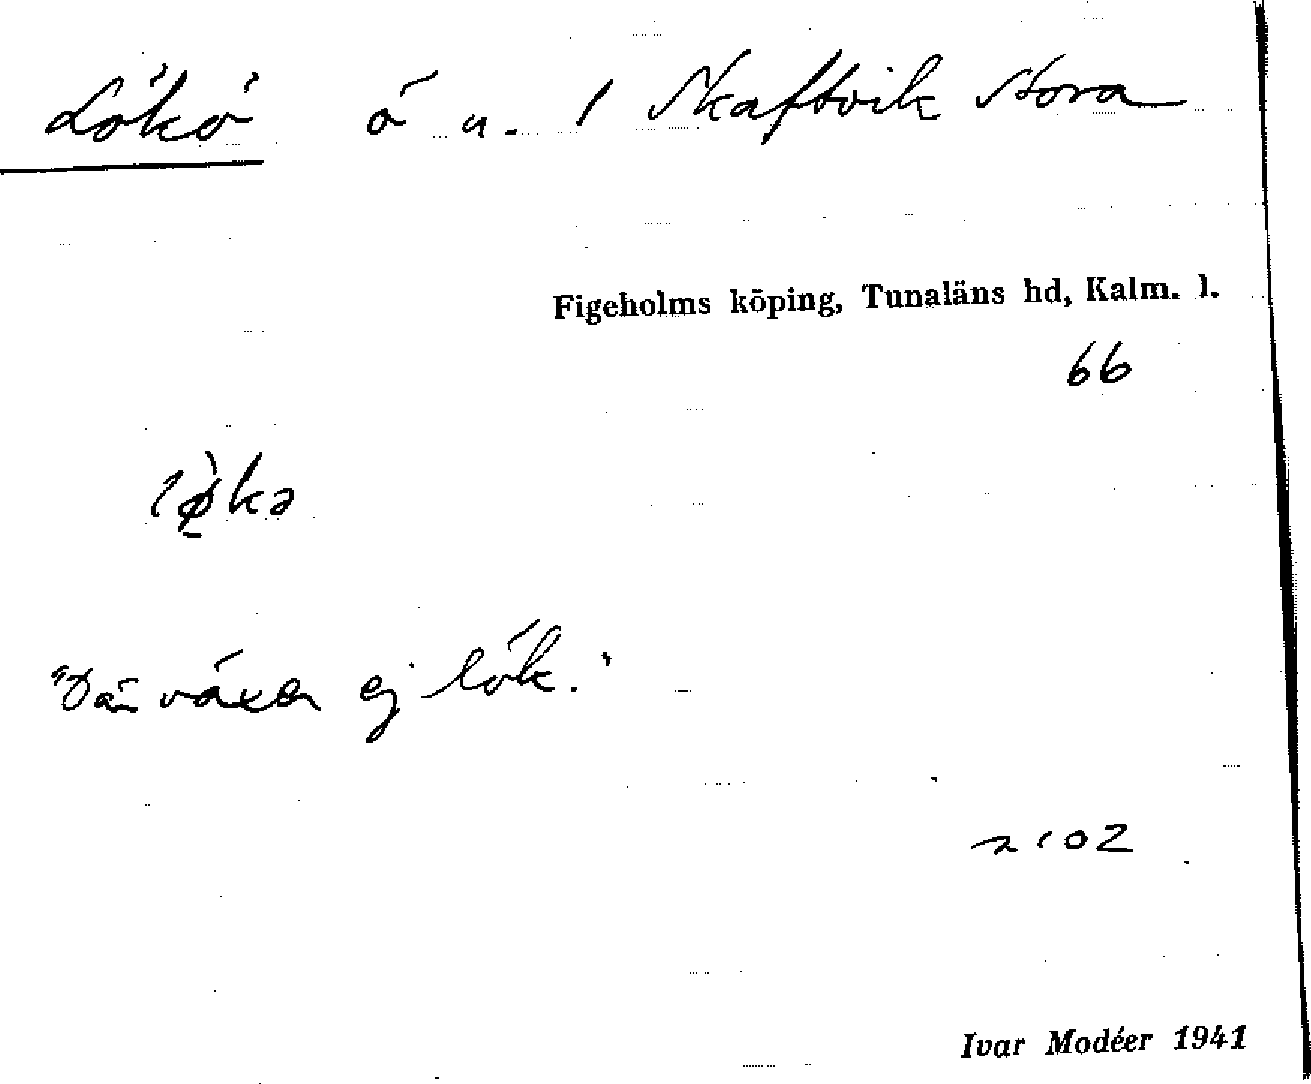 Lökö ö u. / Skaftvik Stora
Figeholms köping, Tunaläns hd, Kalm. l.
66
lø̀kə
"Där växer ej lök."
Ivar Modéer 1941